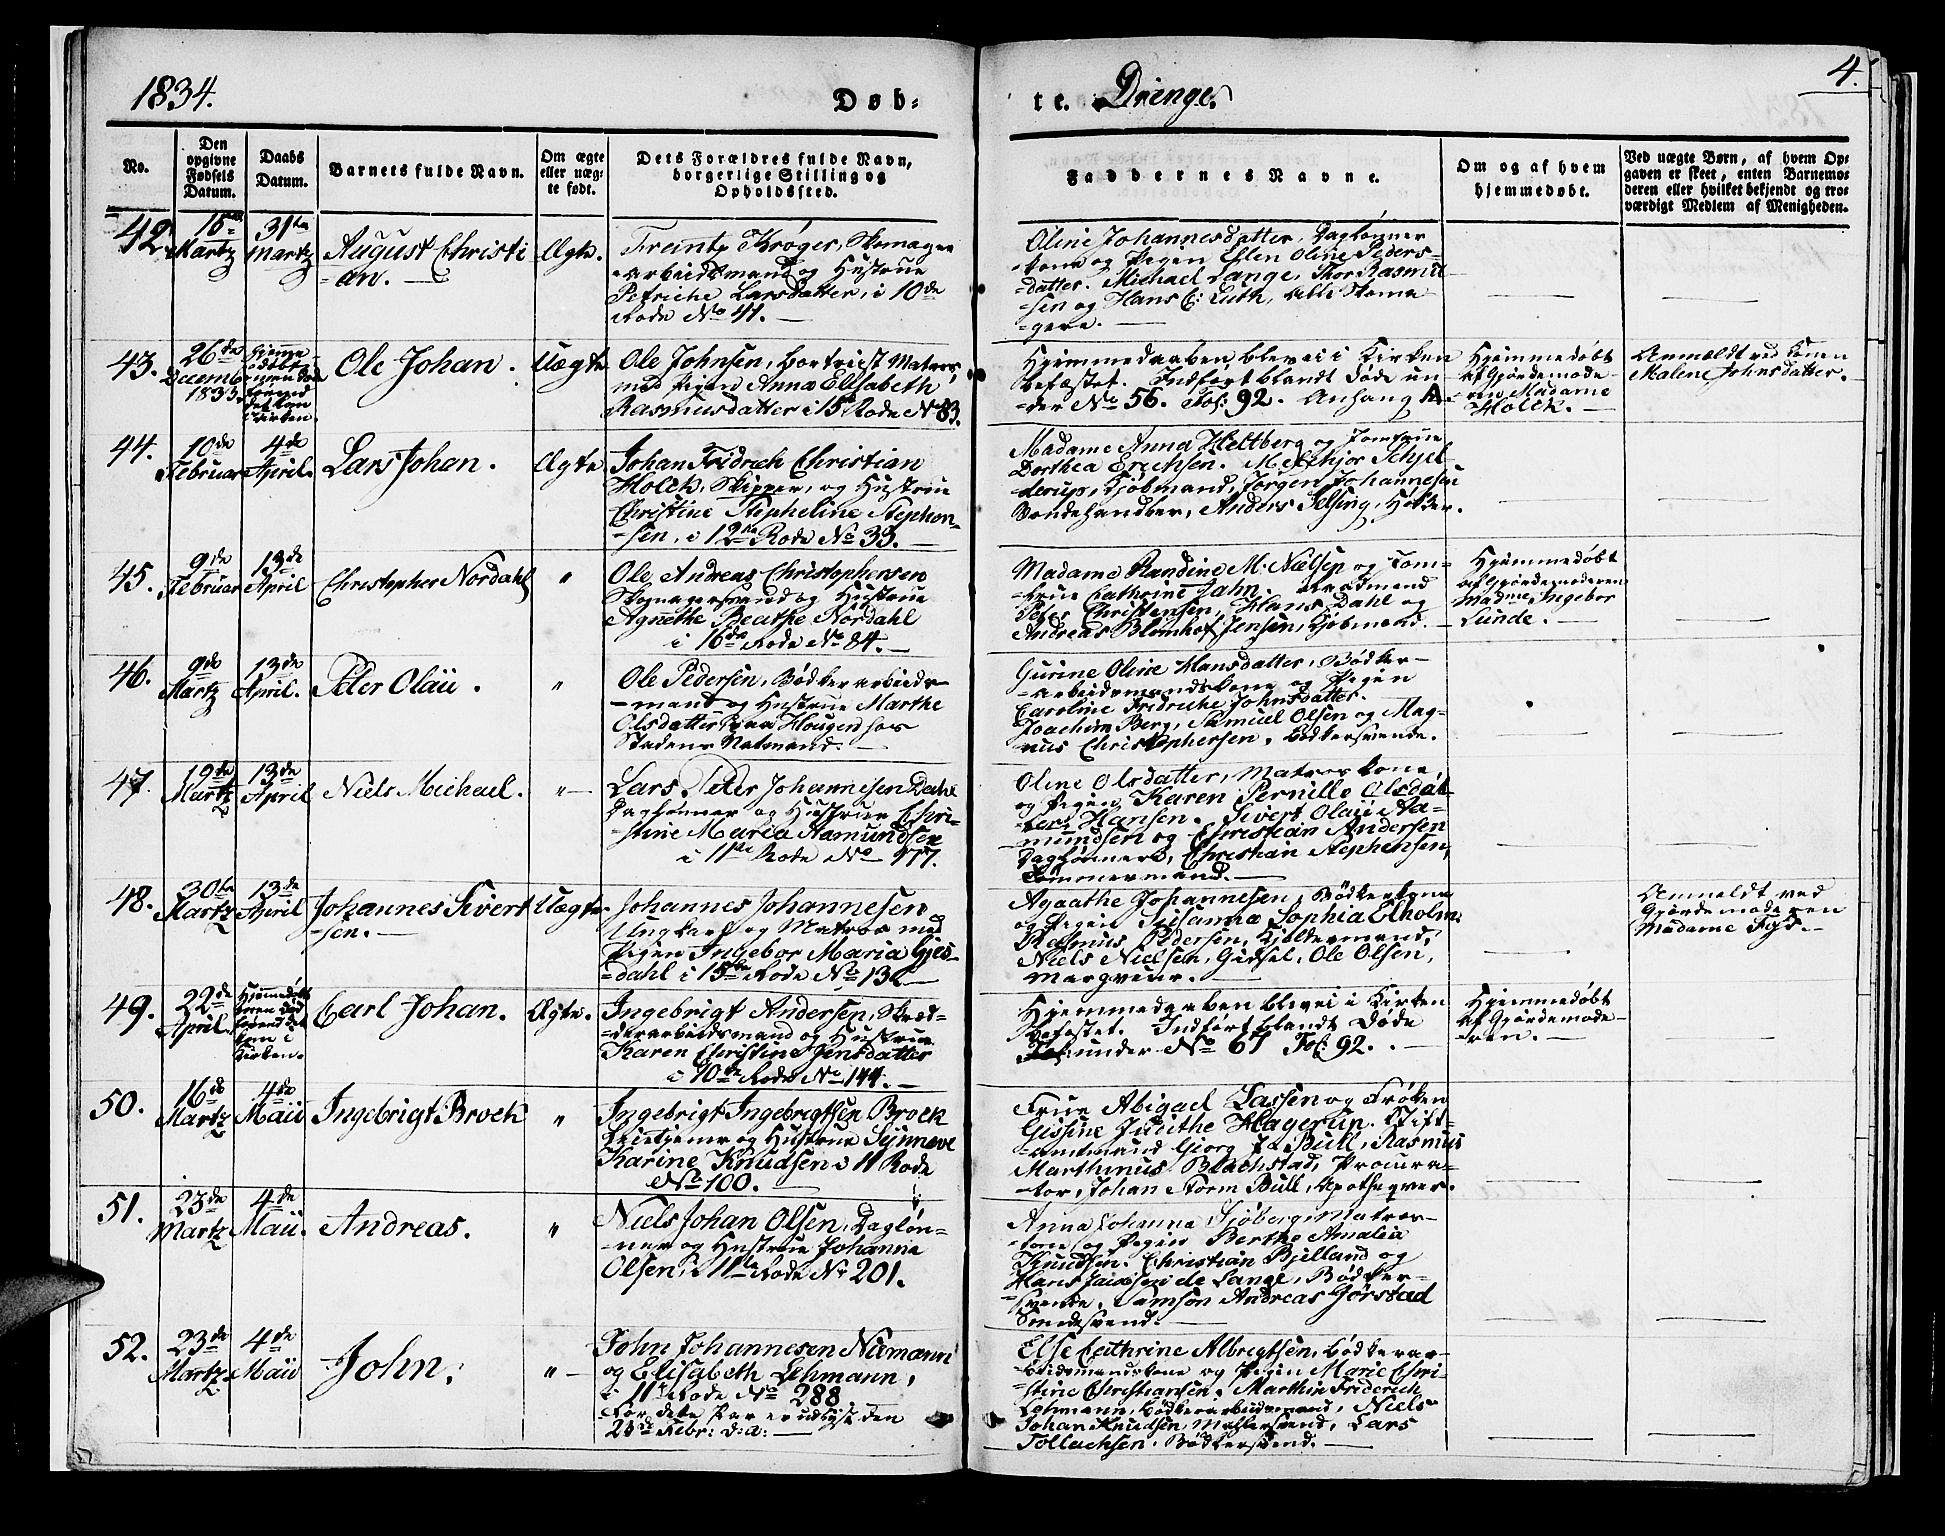 1834.
Døb-
te. Drenge.
4.
No.
Den opgivne Fødsels Datum.
Daabs Datum.
Barnets fulde Navn.
Om ægte eller uægte født.
Dets Forældres fulde Navn, borgerlige Stilling og Opholdssted.
Faddernes Navne.
Om og af hvem hjemmedøbt.
Ved uægte Børn, af hvem Opgaven er skeet, enten Barnemoderen eller hvilket bekjendt og troværdigt Medlem af Menigheden.
42.
15de Martz
31te Martz
August Christi
=an.
Ægte.
Krøger, Skomager
=arbeidsmand og Hustrue
Larsdatter, i 10de
Rode No 41.
Oline Johannesdatter, Daglønner
kone og Pigen Ellen Oline Peders-
=datter. Michael Lange, Thor Rasmu
=sen og Hans C: Luth, alle Skoma
=gere.
43.
26de Decemb 1833.
Ole Johan.
Uægte
Ole Johnsen, bortreist Matros,
med Pigen Anna Elisabeth
Rasmusdatter i 15de Rode No 83.
Hjemmedaaben blev ei i Kirken
befæstet. Indført blandt Døde un
=der No 56. Fol: 92. Anhang A.
Hjemmedøbt
af Gjordemode-
ren Madame
Holck.
Anmeldt ved Konen
Malene Johnsdatter.
44.
10de Februar
4de April.
Lars Johan.
Ægte
Johan Fridrich Christian
Holck, Skipper, og Hustrue
Christine Stepheline Stephen-
=sen, i 12te Rode No 33.
Madame Anna Heltberg og Jomfrue
Dorthea Erichsen. Melchjor Schjel
derup, Kjøbmand, Jørgen Johannesen
Anders Helsing, Holder.
45.
9de Februar
13de April
Christopher Nordahl
"
Ole Andreas Christophersen
og Hustrue
Agnethe Beathe Nordahl
i 16de Rode No 84.
Madame Randine M: Nielsen og Jom-
frue Cathrine Jahn.
Peter Christensen, Hans Dahl og
Andreas Blomhof Jensen, Kjøbmænd.
Hjemmedøbt
af Gjordemoderen
Madme Ingebor
Lunde.
46.
9de Martz
13de April.
Peter Olaii.
"
Ole Pedersen, Bødkerarbeids-
=mand og Hustrue Marthe
Olsdatter paa Hougen hos
Stadens Natmand.
Gurine Oline Hansdatter, Bødker-
=arbeidsmandskone og Pigen
Caroline Fridriche Johnsdatter.
Joachim Berg, Samuel Olsen og Mag-
nus Christophersen, Bødkersvende.
47.
19de Martz
13de April
Niels Michael.
"
Lars Peter Johannesen Dahl
Daglønner og Hustrue Chri-
=stine Maria Aamundsen
i 11te Rode No 177.
Oline Olsdatter, Matroskone
og Pigen Karen Pernille Olsdat
Hansen. Sivert Olaii Aa-
mundsen og Christian Andersen
Daglønnere, Christian Stephensen,
Tømmermand.
48.
30te Martz
13de April
Johannes Sivert
=sen.
Uægte
Johannes Johannesen
Ungkarl og Matros med
Pigen Ingebor Maria Gjes-
=dahl i 15de Rode No 136
Agaathe Johannesen, Bødkerkone
og Pigen Susanna Sophia Elholm.
Rasmus Pedersen, Kjeldermand,
Niels Nielsen, Gidsel, Ole Olsen,
Anmeldt ved
Gjordemoderen
Madame Fyd.
49.
22de April.
Hjemmedøbt
Barn død
førend det
kom i
Kirken.
Carl Johan.
Ægte.
Ingebrigt Andersen, Skræd-
=derarbeidsmand og Hustrue
Karen Christine Jensdatter
i 10de Rode No 144.
Hjemmedaaben blev ei i Kirken
befæstet. Indført blandt Døde
under No 67 Fol: 92.
Hjemmedøbt
af Gjordemode-
ren.
50.
16de Martz
4de Maii
Ingebrigt Brock
"
Ingebrigt Ingebrigtsen Brock
og Hustrue Synneve
Karine Knudsen i 11 Rode
No 100.
Frue Abigael Lassen og Frøken
Gissine Judithe Hagerup. Stift-
=amtmand Gjorg J: Bull, Rasmus
Marthinus Blachstad, Procura-
=tor, Johan Storm Bull, Apotheqver.
51.
23de Martz
4de Maii.
Andreas.
"
Niels Johan Olsen, Dagløn-
=ner og Hustrue Johanne
Olsen, i 11te Rode No 201.
Anna Johanna Sjøberg, Matros-
=kone og Pigen Berthe Amalia
Knudsen. Christian Bjelland og
Hans de Lange, Bødker-
=svende, Samson Andreas Gjørstad
Smedesvend.
52.
23de Martz
4de Maii
John.
"
John Johannesen Niemann
og Elisabeth Lehmann,
i 11te Rode No 288
Fordette Par er udlyst den
Febr: d:a:
Else Cathrine Albrigtsen, Bødkerar-
=beidsmandskone og Pigen Marie Chri-
=stine Christiansen. Marthin Friderich
Lehmann, Bødkerarbeidsmand, Niels
Johan Knudsen, Mahlersvend, Lars
Tollachsen, Bødkersvend.